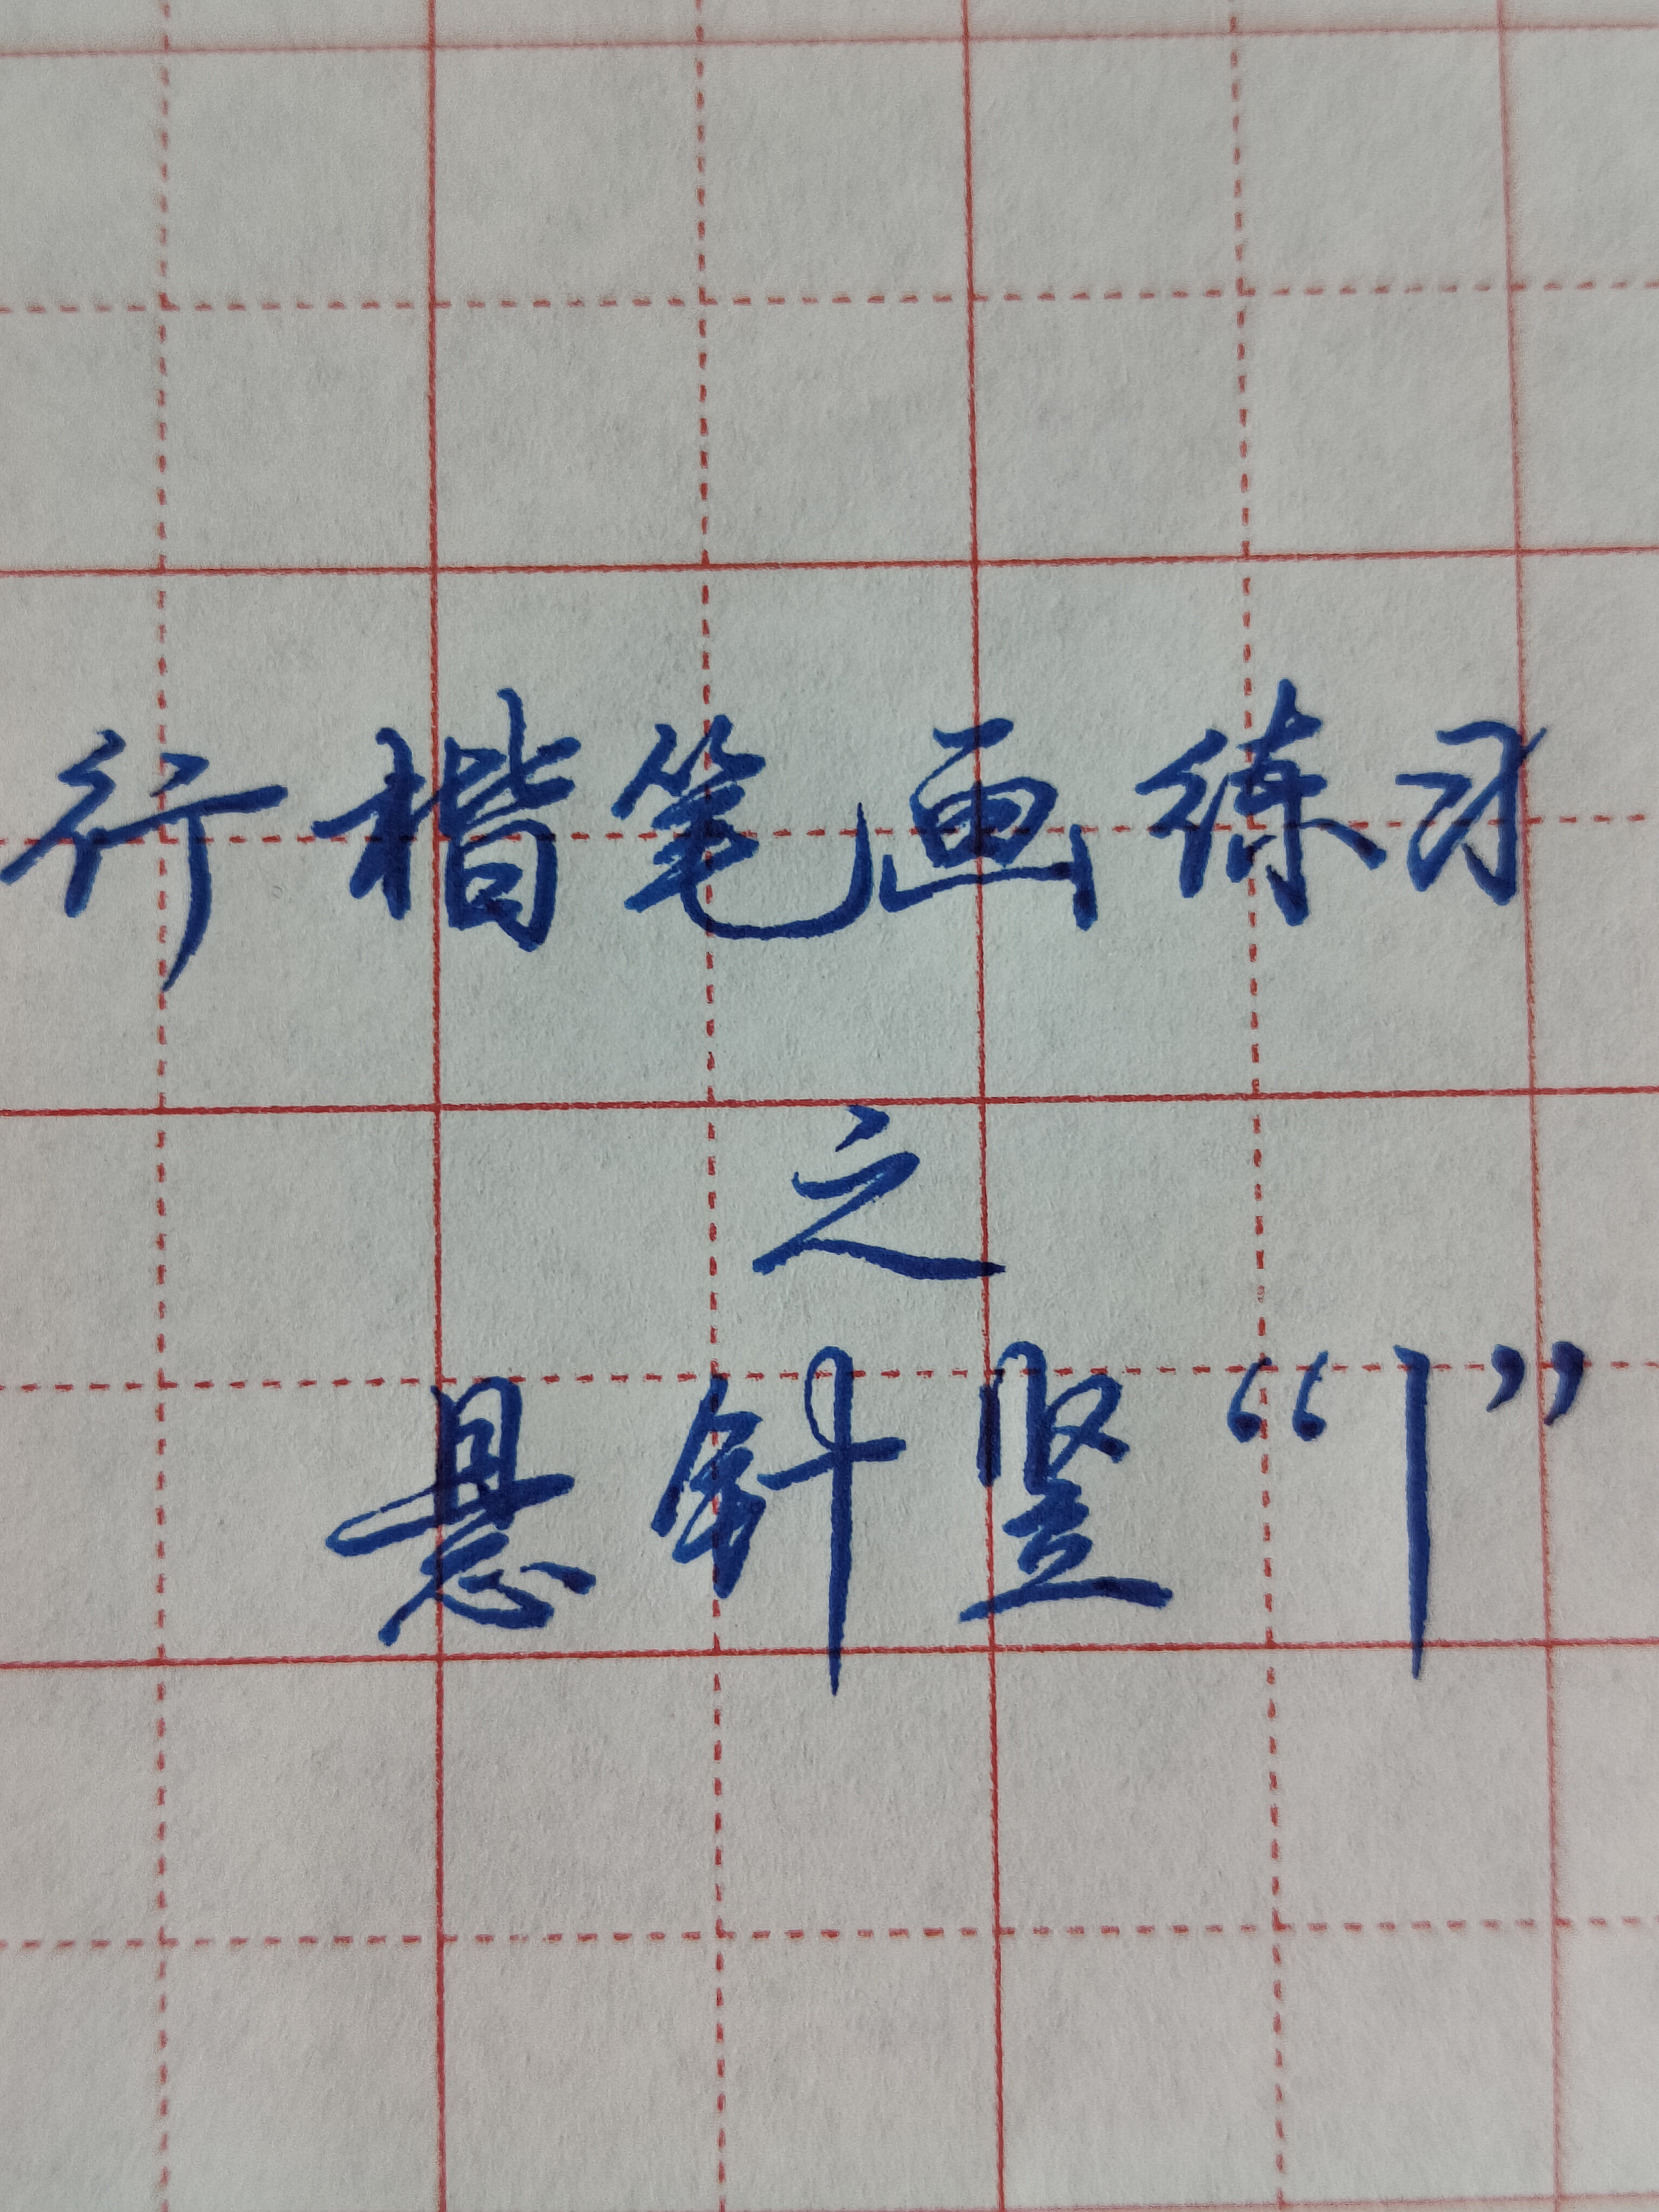 行楷笔画练习
之
悬针竖“丨”